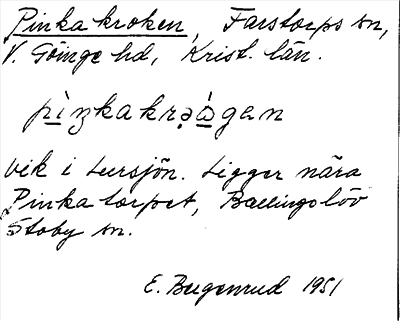 Pinkakroken, Farstorps sn,
V. Göinge hd, Krist. län.
pìŋkakrạ̊̀gan
vik i Lursjön. Ligger nära
Pinkatorpet, Ballingslöv
Stoby sn.
E. Bugenrud 1951